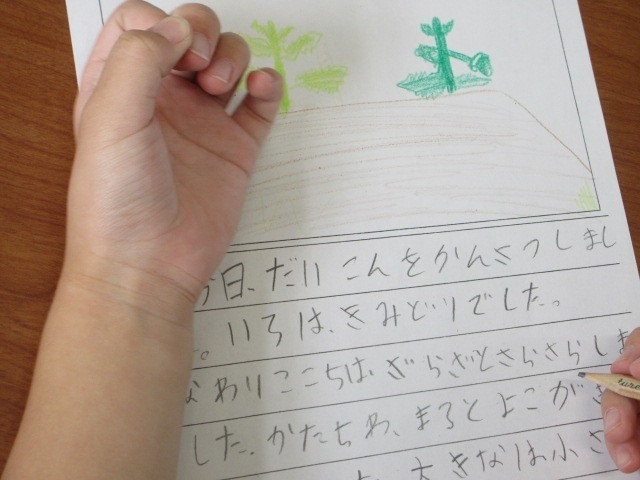 今日、だいこんをかんさつしまし
。いろは、きみどりでした。
なわりここちは、ざらざとさらさらしま
した。かたちわ、まるとよこが
大きなは小さ